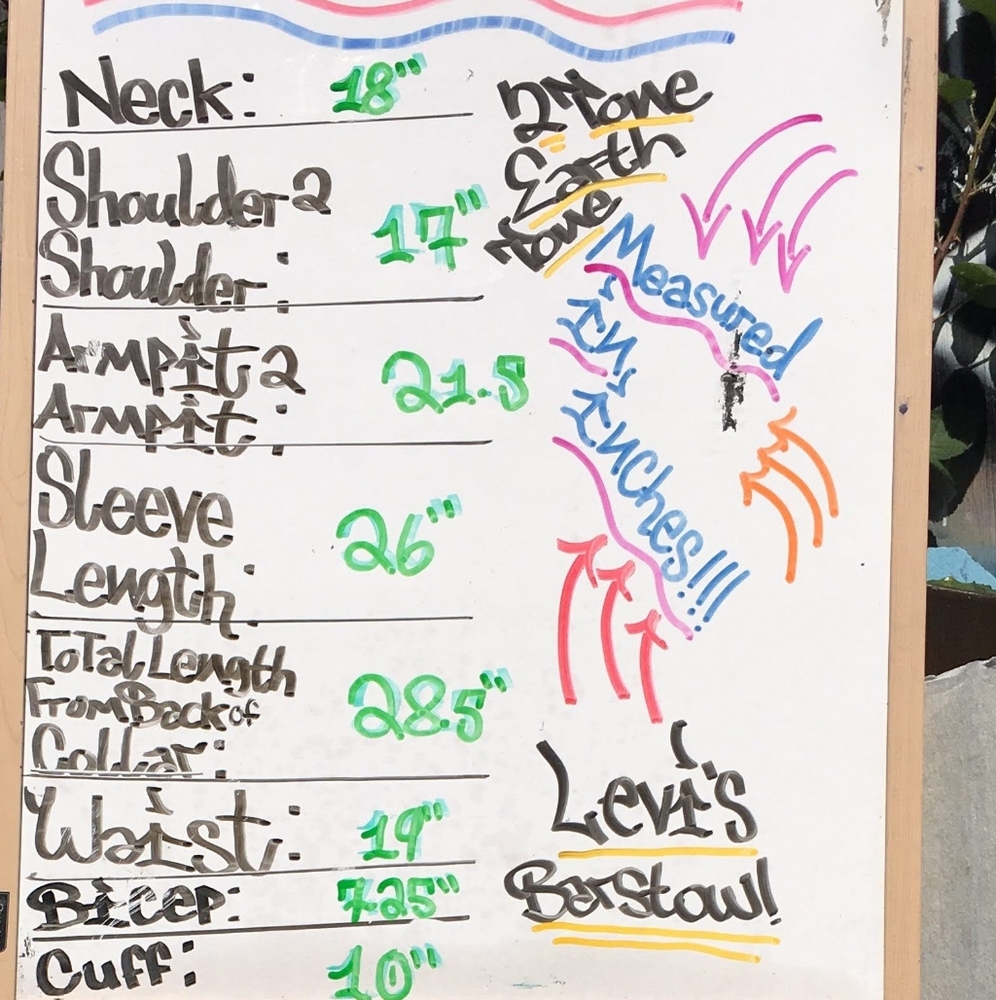 Neck: 18"'
Shoulder 2
Shoulder: 17"'
Armpit 2
Armpit: 21.5
Sleeve
Length: 26"'
Total Length
From Back of
Collar: 28.5"'
Waist: 19"'
Bicep: 7.25"'
Cuff: 10"
2 Tone
Earth
Tone
Measured
in
inches!!!
Levi's
Barstow!